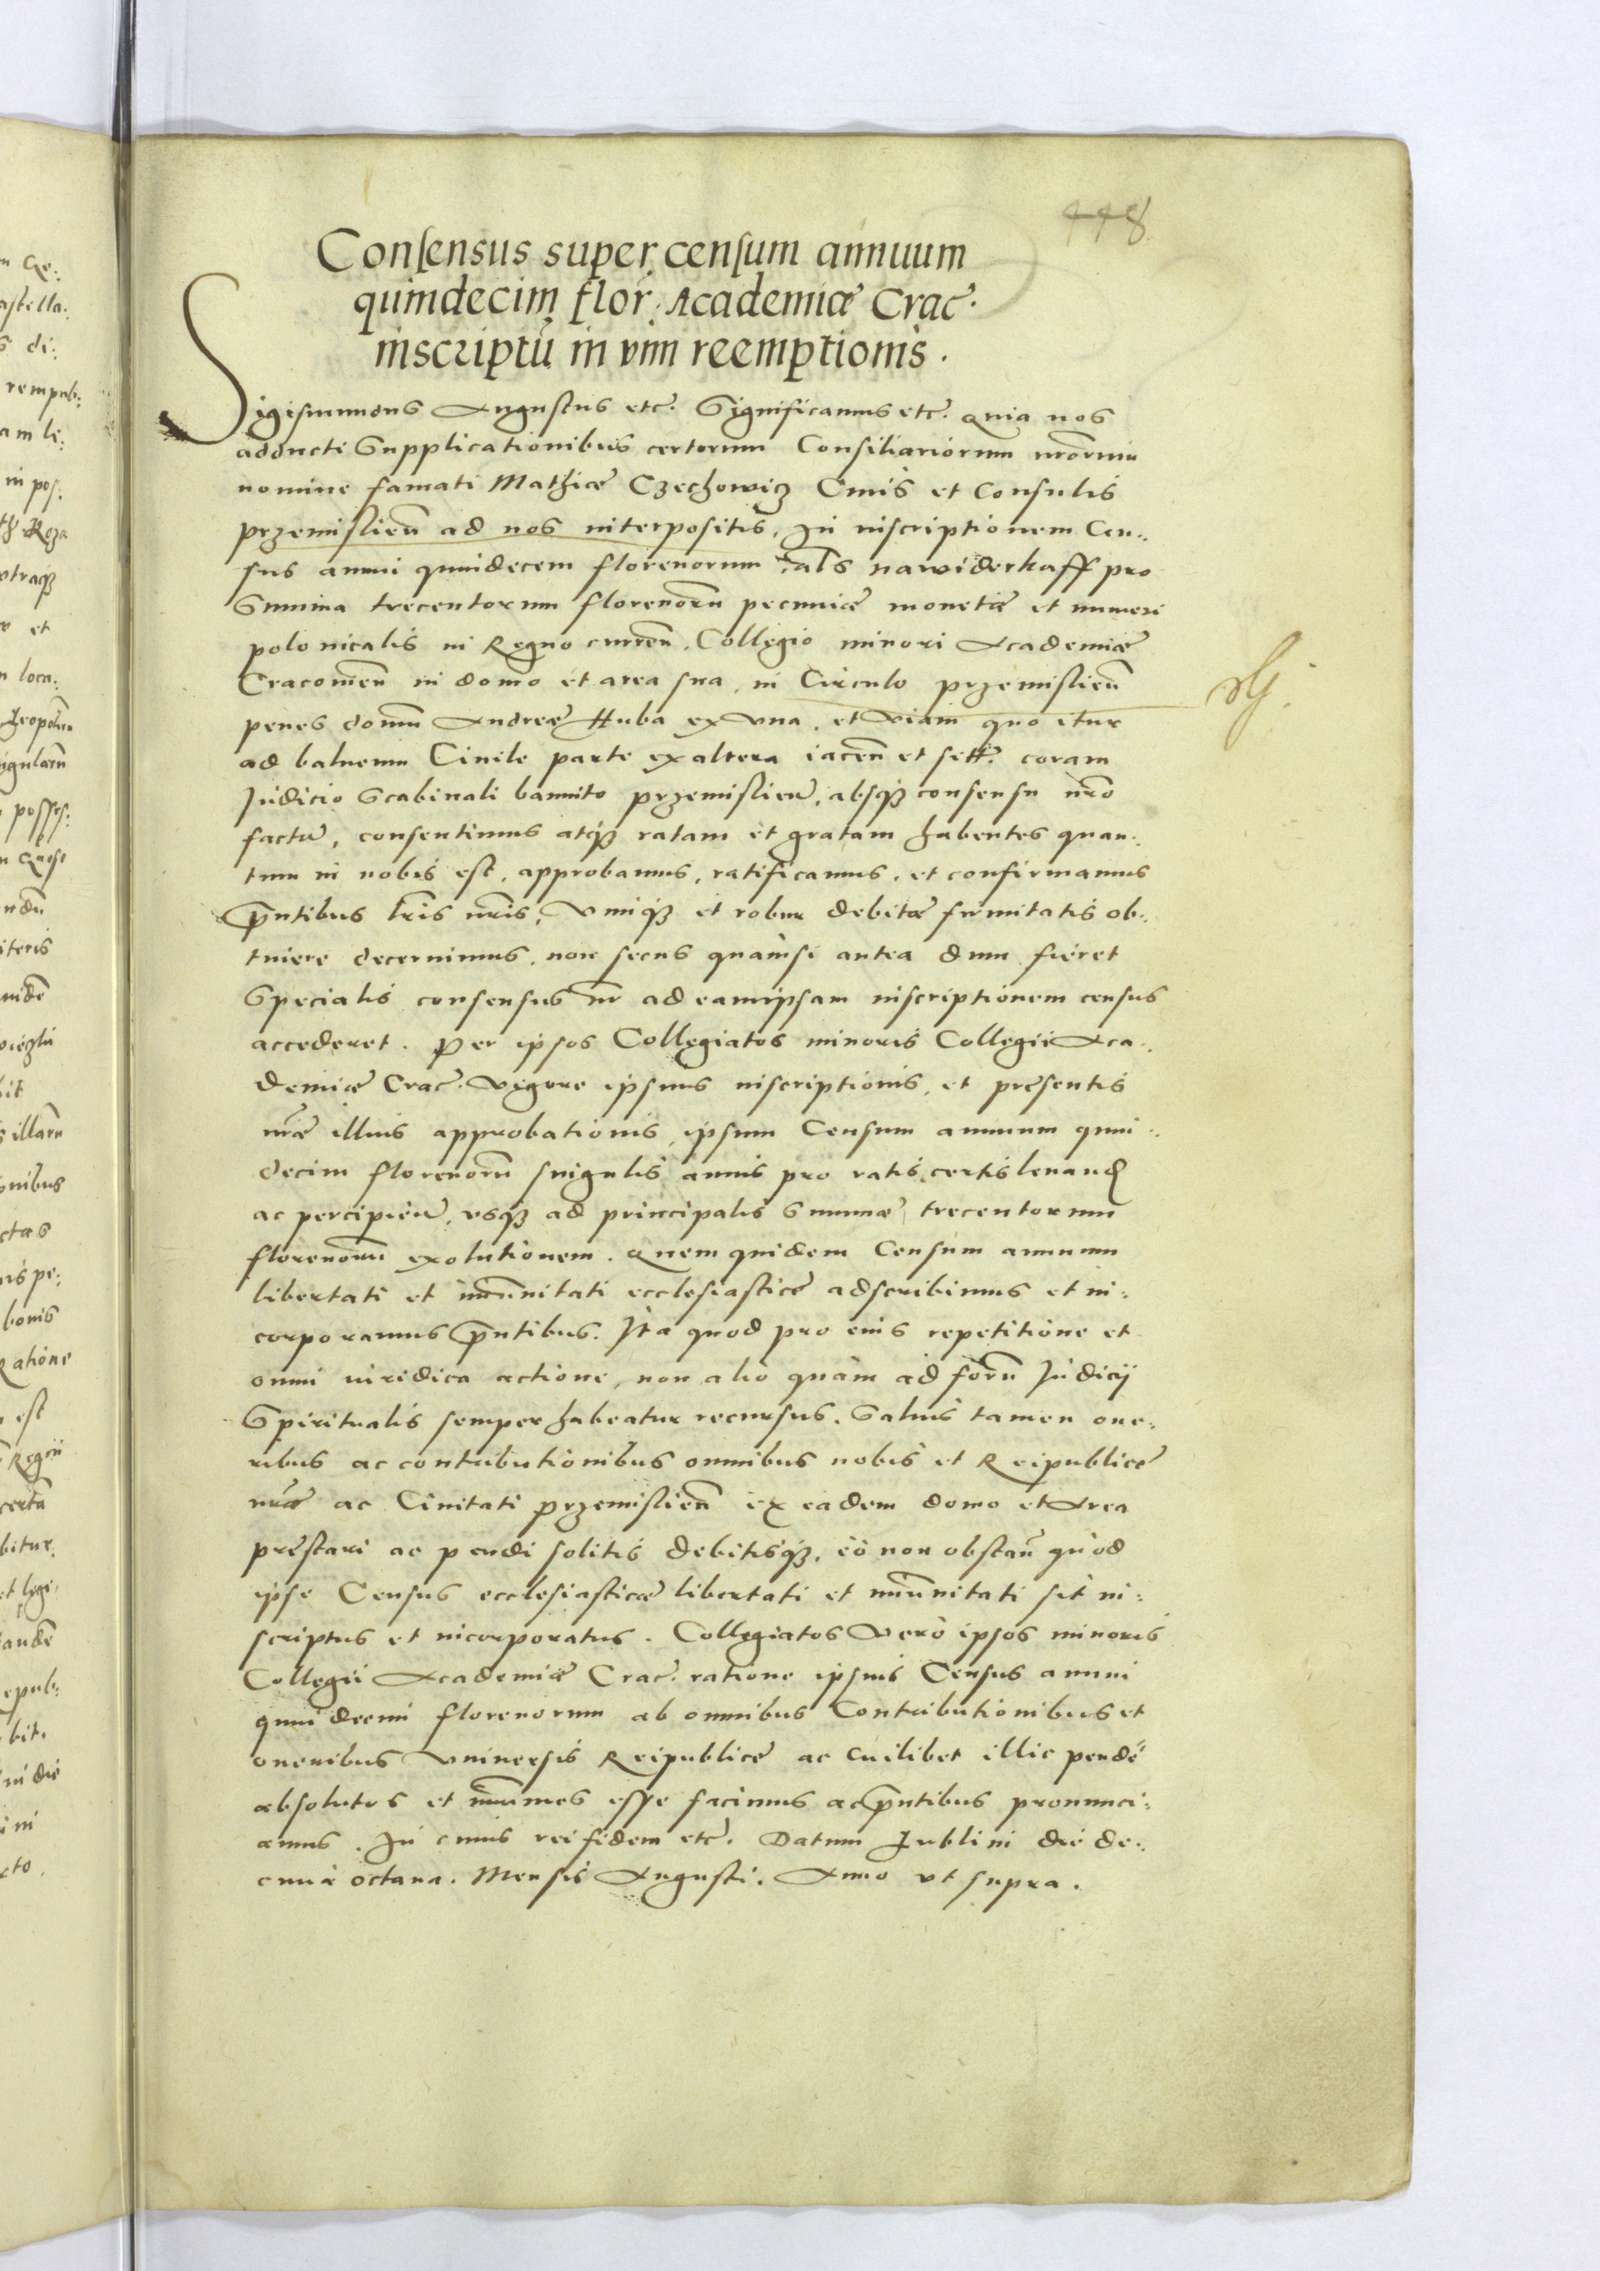 448
Consensus super censum annuum
quindecim flor: Academiæ Crac̄.
inscriptū in vim reemptionis.
Sigismundus Augustus etc̄. Significamus etc̄. Quia nos
adducti Supplicationibus certorum Consiliariorum nr̄orum
nomine famati Mathiæ Czechowicz Ciuis et Consulis
przemislieñ ad nos interpositis, In inscriptionem Cen-
sus annui quindecem florenorum als nawiderkaff pro
Summa trecentorum florenorū pecuniæ monetæ et numeri
polonicalis in Regno curreñ. Collegio minori Academiæ
Cracouieñ in domo et area sua, in Circulo przemislieñ
penes domū Andreæ Huba ex vna, et viam quo itur
ad balneum Ciuile parte ex altera iaceñ et sitt̄. coram
Iudicio Scabinali bannito przemislieñ, absqȝ consensu nr̄o
factū, consentimus atqȝ ratam et gratam habentes quan-
tum in nobis est, approbamus, ratificamus, et confirmamus
pn̄tibus lr̄is nr̄is, vimqȝ et robur debitæ firmitatis ob-
tinere decernimus, non secus quàmsi antea dum fieret
Specialis consensus nr̄ ad eamipsam inscriptionem census
accederet. Per ipsos Collegiatos minoris Collegii Aca-
demiæ Crac̄. vigore ipsius inscriptionis, et presentis
nr̄æ illius approbationis, ipsum Censum annuum quin-
decim florenorū singulis annis pro ratis certis leuanđ
ac percipieñ, vsqȝ ad principalis Summæ trecentorum
florenorū exolutionem. Quem quidem Censum annuum
libertati et imūnitati ecclesiasticæ adscribimus et in-
corporamus pn̄tibus. Ita quod pro eius repetitione et
omni iuridica actione, non alio quàm ad forū Iudicij
Spiritualis semper habeatur recursus. Saluis tamen one-
ribus ac contributionibus omnibus nobis et Reipublicæ
nr̄æ ac Ciuitati przemislieñ ex eadem domo et Area
præstari ac pendi solitis debitisqȝ, eò non obstañ quòd
ipse Census ecclesiasticæ libertati et imūnitati sit in-
scriptus et incorporatus. Collegiatos verò ipsos minoris
Collegii Academiæ Crac̄. ratione ipsius Census annui
quindecim florenorum ab omnibus Contributionibus et
oneribus vniuersis Reipublicæ ac cuilibet illic pendē
absolutos et imūnes esse facimus ac pn̄tibus pronunci-
amus. In cuius rei fidem etc̄. Datum Lublini die de-
cima octaua. Mensis Augusti. Anno vt supra.